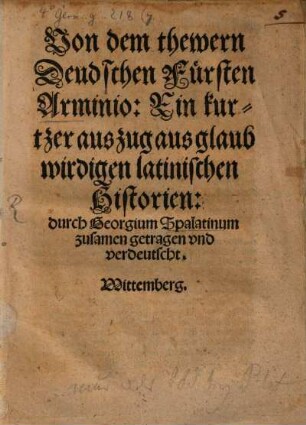 4° Germ. g. 218 (7
5
Von dem thewern
Deudschen Fürsten
Arminio: Ein kur-
tzer auszug aus glaub
wirdigen latinischen
Historien:
durch Georgium Spalatinum
zusamen getragen vnd
verdeutscht.
Wittemberg.
R